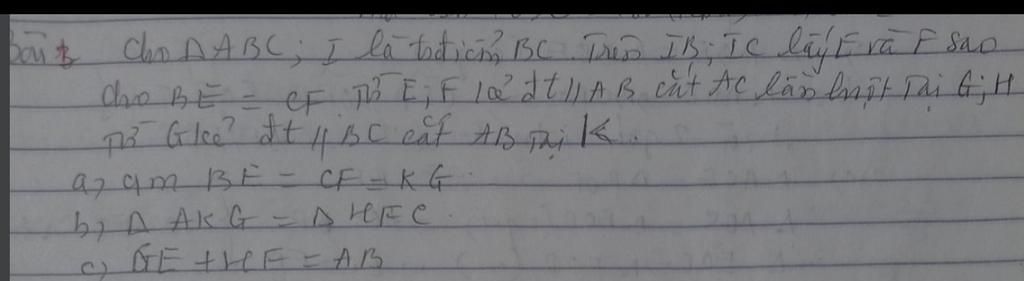 Cho ΔABC; I là tđiểm BC Trên IB; IC lấy E và F sao
cho BE = CF Từ E; F kẻ đt // AB cắt AC lần lượt Tại G; H
Từ G kẻ đt // BC cắt AB Tại K.
a, cm BE = CF = KG.
b, Δ AKG = Δ HFC.
c, GE + HF = AB